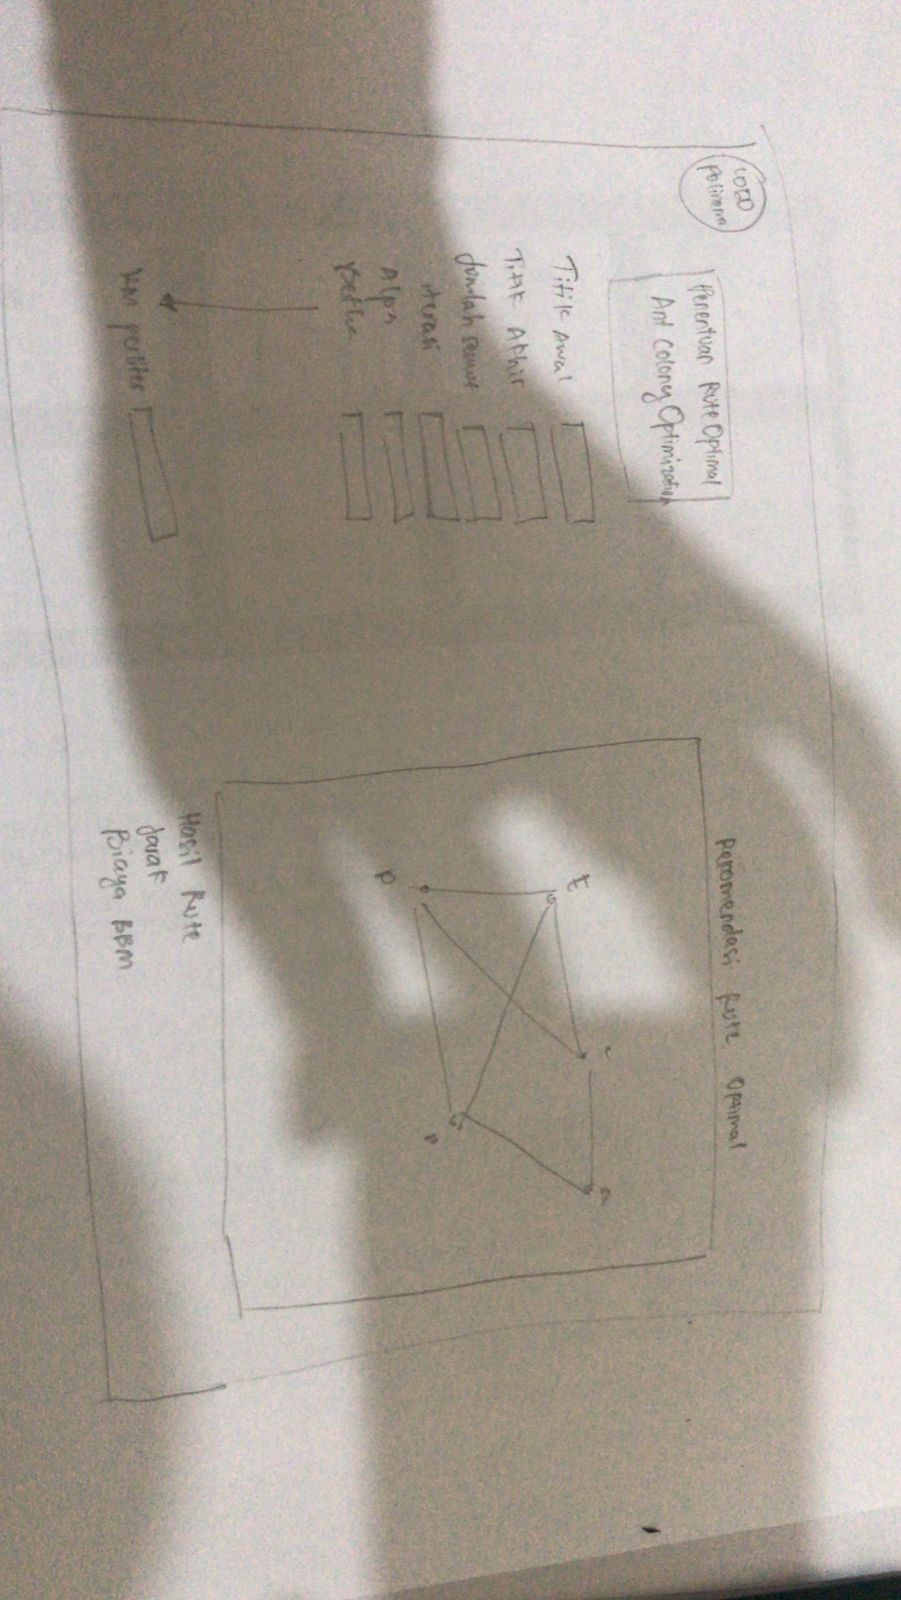 LOGO
Polinema
Penentuan Rute Optimal
Ant Colony Optimization
Titik Awal
Titik Akhir
Jumlah semut
iterasi
Alpa
Betha
KM perliter
Rekomendasi Rute Optimal
E
D
Hasil Rute
Jarak
Biaya BBM